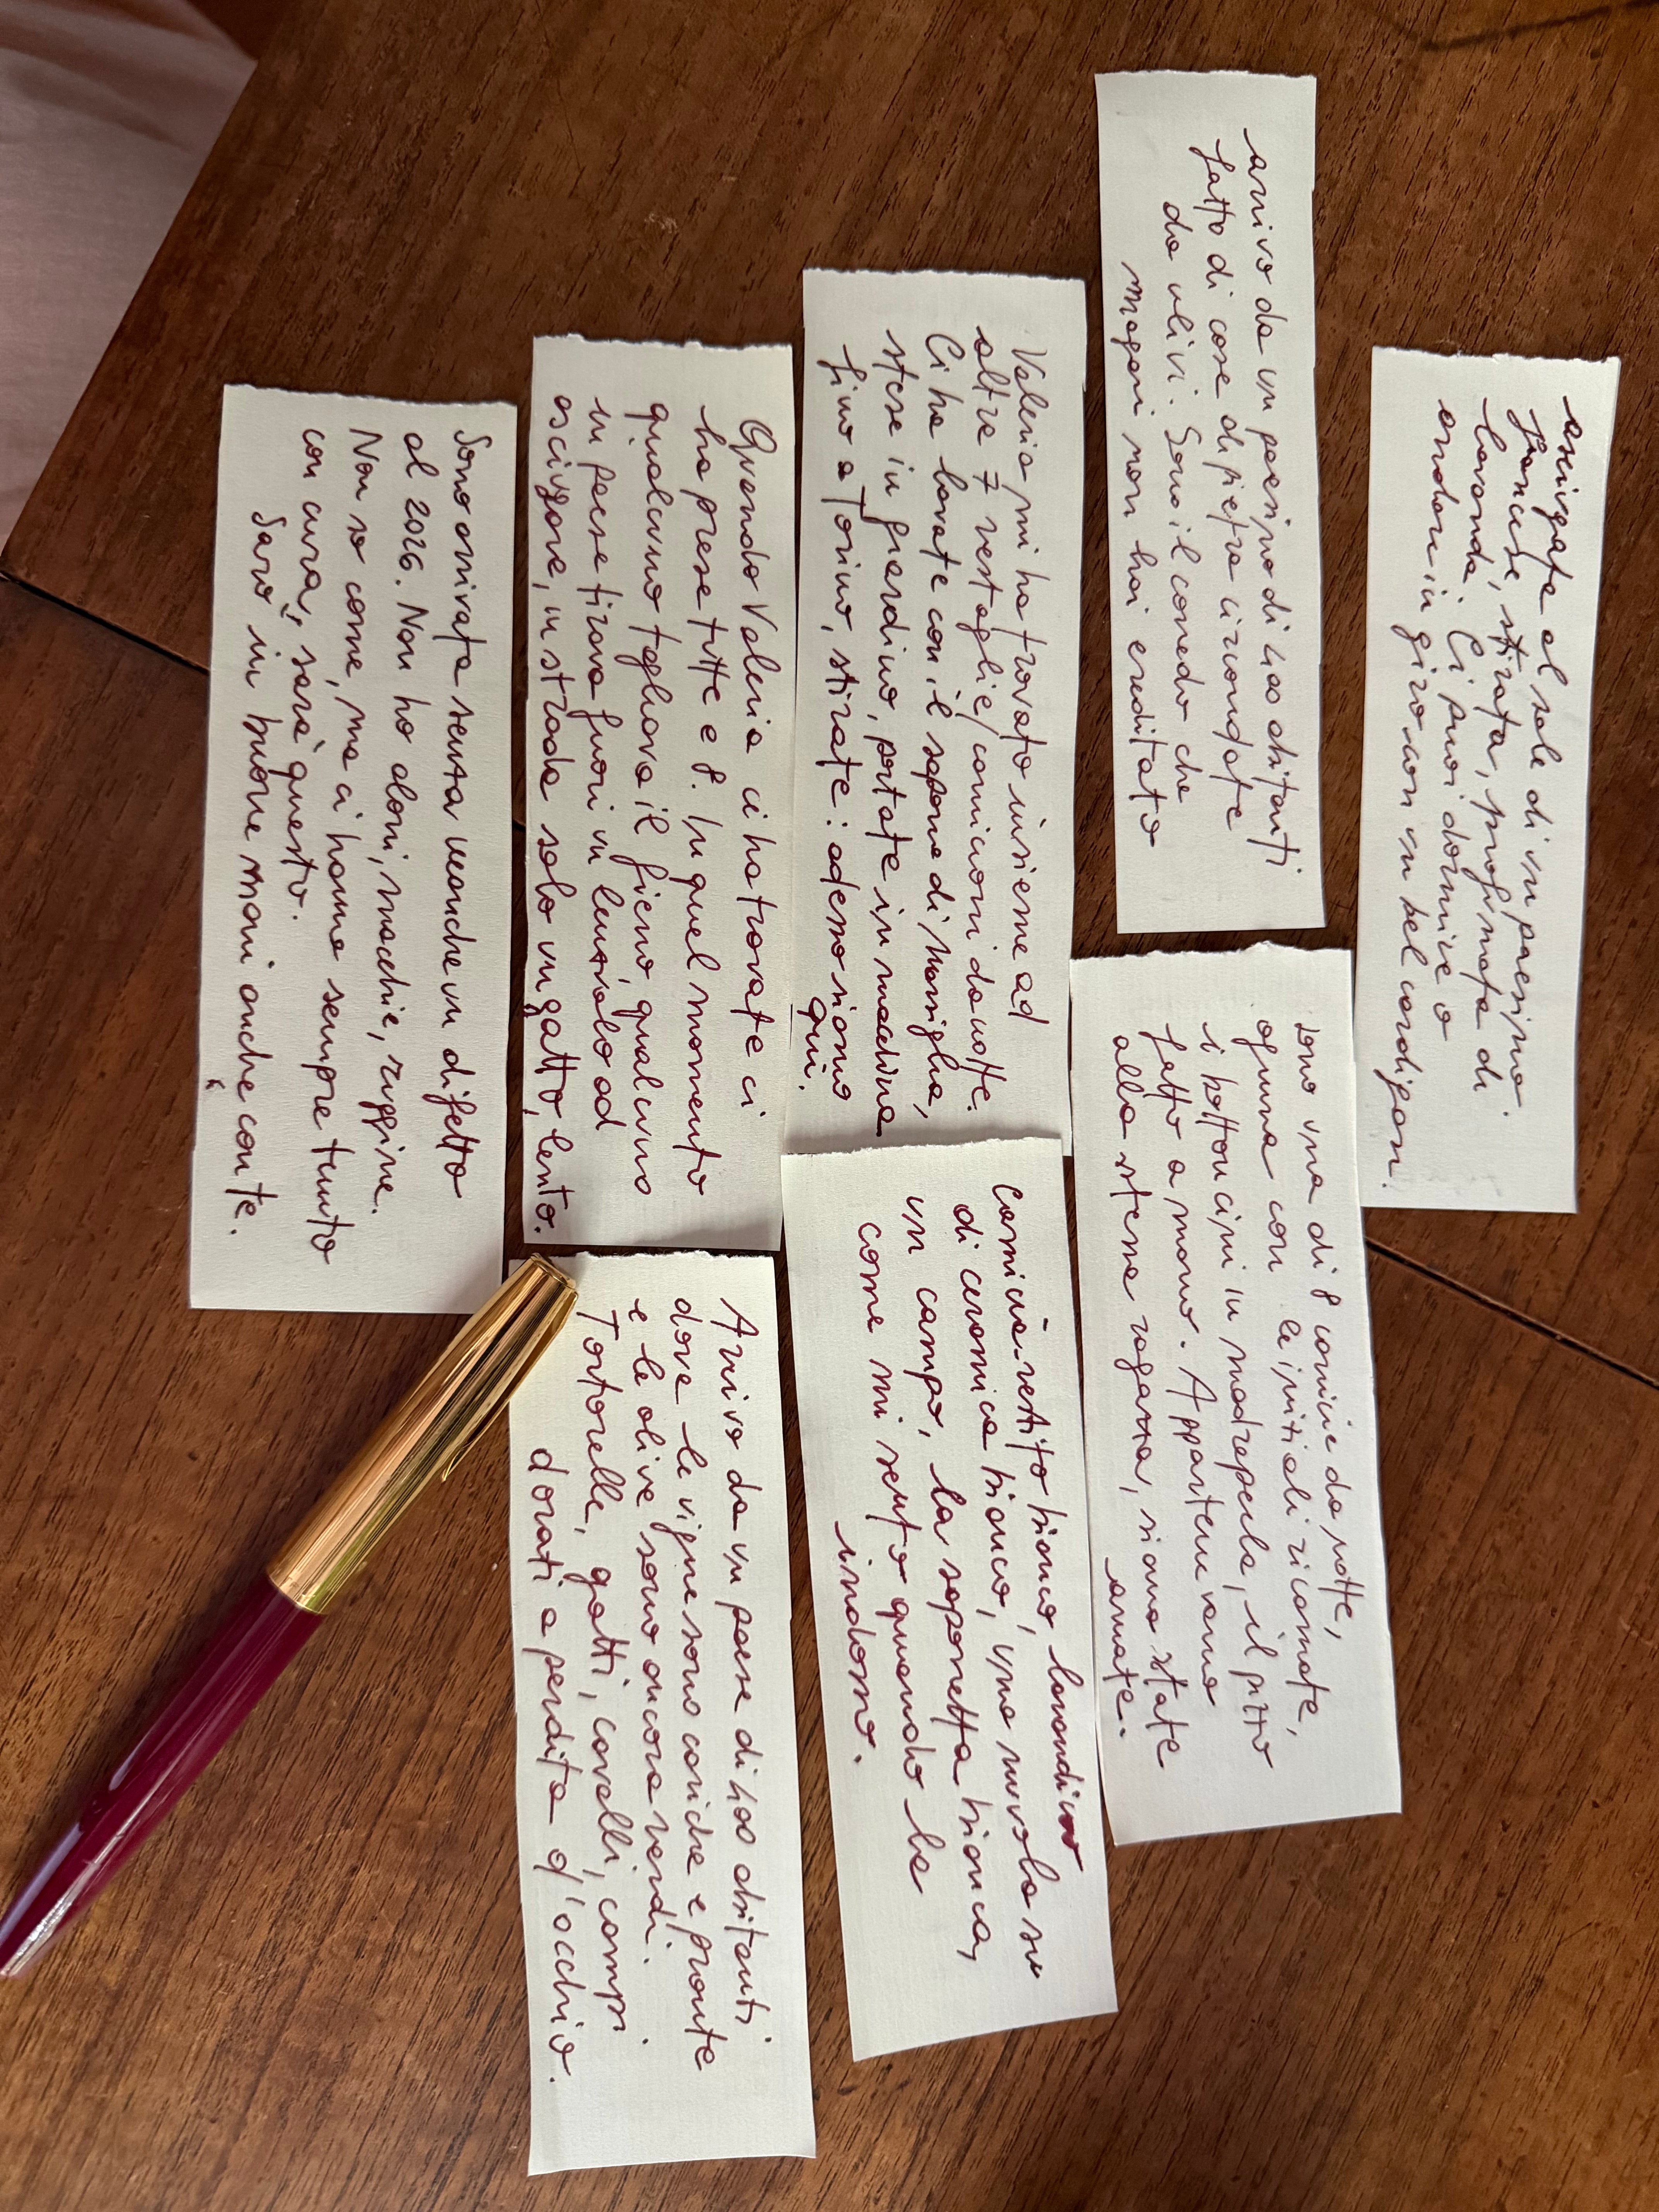 asciugata al sole di un paesino
francese, stirata, profumata di
lavanda. Ci puoi dormire o
andare in giro con un bel cardigan.
arrivo da un paesino di 400 abitanti
fatto di case di pietra circondate
da ulivi. Sono il corredo che
magari non hai ereditato
sono una di 8 camicie da notte,
ognuna con le iniziali ricamate,
i bottoncini in madreperla, il pizzo
fatto a mano. Appartenevamo
alla stessa ragazza, siamo state
amate.
Valeria mi ha trovato insieme ad
altre 7 vestaglie/camicioni da notte.
Ci ha lavate con il sapone di Marsiglia,
stese in giardino, portate in macchina
fino a Torino, stirate: adesso siamo
qui.
Camicia-vestito bianco, lavandino
di ceramica bianco, una nuvola su
un campo, la saponetta bianca,
come mi sento quando la
indosso.
Quando Valeria ci ha trovate ci
ha prese tutte e 8. In quel momento
qualcuno tagliava il fieno, qualcuno
in paese tirava fuori un lenzuolo ad
asciugare, in strada solo un gatto, lento.
Arrivo da un paese di 400 abitanti
dove le vigne sono cariche e pronte
e le olive sono ancora verdi.
Tortorelle, gatti, cavalli, campi
dorati a perdita d'occhio.
Sono arrivata senza neanche un difetto
al 2026. Non ho aloni, macchie, ruggine.
Non so come, ma ci hanno sempre tenuto
con cura, sarà questo.
Sarò in buone mani anche con te.